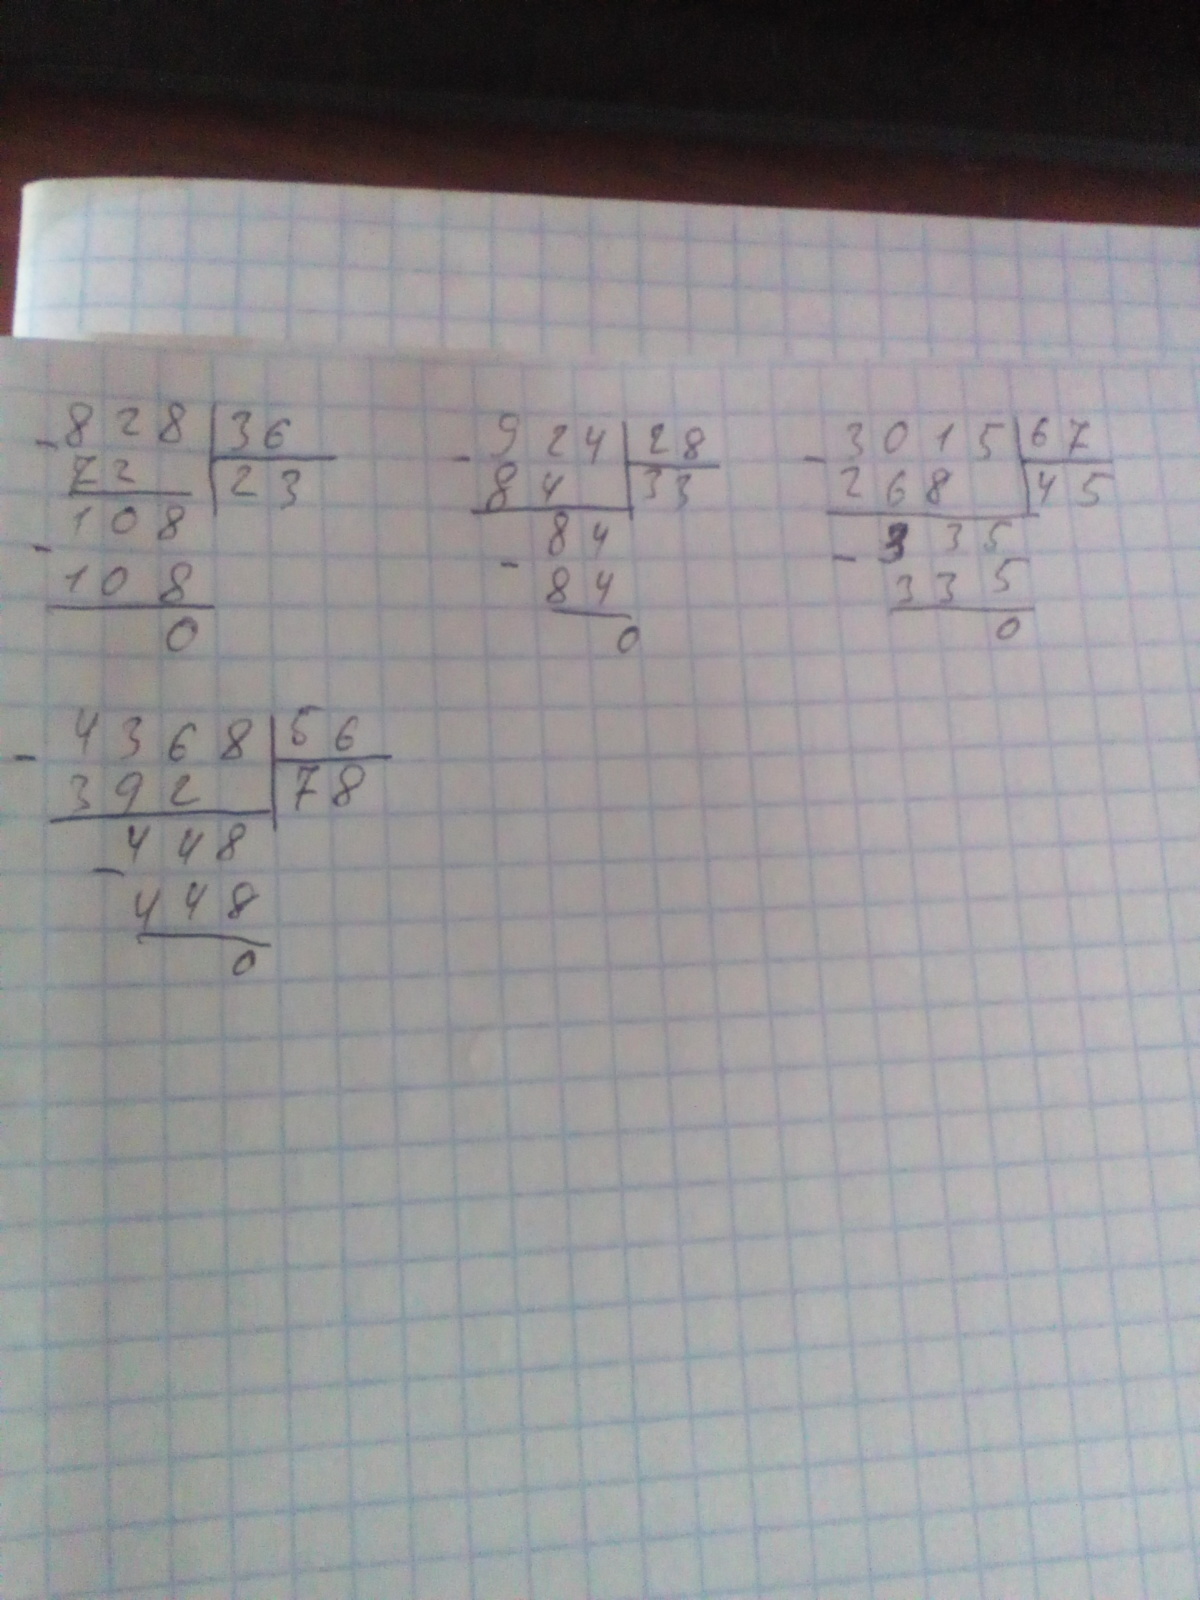 828 36
72 23
108
108
0
924 28
84 33
84
84
0
3015 67
268 45
335
335
0
4368 56
392 78
448
448
0